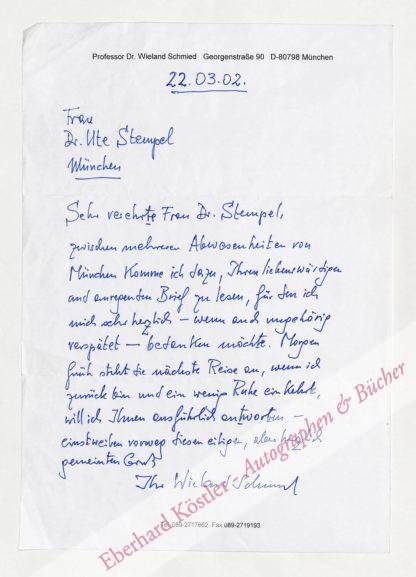 Professor Dr. Wieland Schmied Georgenstraße 90 D-80798 München
22.03.02.
Frau
Dr. Ute Stempel
München
Sehr verehrte Frau Dr. Stempel,
zwischen mehreren Abwesenheiten von
München komme ich dazu, Ihren liebenswürdigen
und anregenden Brief zu lesen, für den ich
mich sehr herzlich — wenn auch ungehörig
verspätet — bedanken möchte. Morgen
früh steht die nächste Reise an, wenn ich
zurück bin und ein wenig Ruhe einkehrt,
will ich Ihnen ausführlich antworten —
einstweilen vorweg diesen eiligen, aber herzlich
gemeinten Gruß
Ihr Wieland Schmied
Tel. 089-2717662 Fax 089-2719193
Eberhard Köstler - Autographen & Bücher